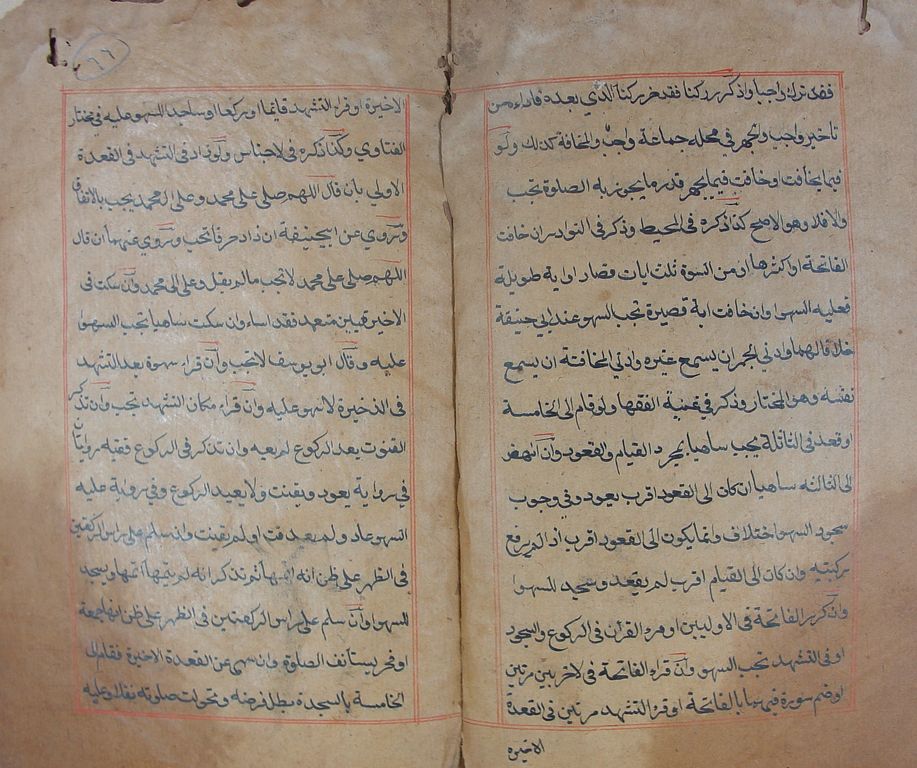 فقد ترك واجبا واذكر ركنا فقد غير ركنا الذي بعده فاداء من
تاخير واجب والجهر في محله جماعة واجب والمخافة كذلك ولو
فيما يخافت او خافت فيما يجهر قدر ما يجوز به الصلوة تجب
والا فلا وهو الاصح كذا ذكره في المحيط وذكر في النوادر ان خافت
الفاتحة او اكثرها او من السورة ثلث ايات قصار او اية طويلة
فعليه السهو وان خافت اية قصيرة تجب السهو عند ابي حنيفة
خلافا لهما وادني الجهر ان يسمع غيره وادني المخافتة ان يسمع
نفسه وهو المختار وذكر في غنية الفقها ولو قام الى الخامسة
او قعد في الثالثة يجب ساهيا بمجرد القيام والقعود وان انتهض
الى الثالثه ساهيا ان كان الى القعود اقرب يعود وفي وجوب
سجود السهو اختلاف وانما يكون الى القعود اقرب اذا لم يرفع
ركبتيه وان كان الى القيام اقرب لم يقعد وسجد للسهو
وان كرر الفاتحة في الاوليين او قرء القرآن في الركوع والسجود
او في التشهد تجب السهو وان قراء الفاتحة في الاخريين مرتين
او ضم سورة فيهما بالفاتحة او قرء التشهد مرتين في القعدة
الاخيره
٦٦
الاخيرة او قراء التشهد قايما او ركعا او ساجدا لا سهو عليه في مختار
الفتاوي وكذا ذكره في الاجناس ولو زاد في التشهد في القعدة
الاولي بان قال اللهم صلي على محمد وعلى ال محمد يجب بالاتفاق
وتروي عن ابي حنيفة ان زاد حرفا تجب وتروي عنهما ان قال
اللهم صلي على محمد لا تجب مالم يقل وعلى ال محمد وان سكت في
الاخيرتين متعمد فقد اساء وان سكت ساهيا تجب السهو
عليه وقال ابو يوسف لا تجب وان قراء سورة بعد التشهد
في الذخيرة لا سهو عليه وان قراء مكان التشهد تجب وان تذكر
القنوت بعد الركوع لم يعيه وان تذكر في الركوع ففيه روايتان
في رواية يعود ويقنت ولا يعيد الركوع وفي رواية عليه
السهو عاد ولم يعد قنت او لم يقنت وان سلم على راس الركعتين
في الظهر على ظن انه اتمها ثم تذكر انه لم يتمها اتمها ويسجد
للسهو وان سلم على راس الركعتين في الظهر على ظن انها جمعة
او فجر يستأنف الصلوة وان سهى عن القعدة الاخيرة فقام الى
الخامسة بالسجدة بطل فرضه وتحولت صلوته نفلا وعليه